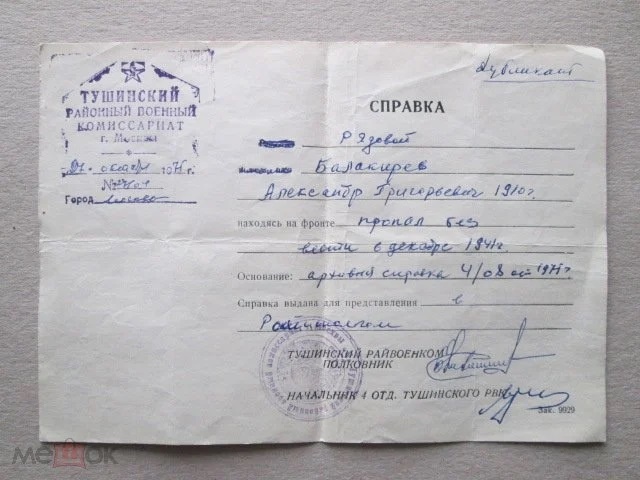 Дубликат
ТУШИНСКИЙ
РАЙОННЫЙ ВОЕННЫЙ
КОМИССАРИАТ
г. Москвы
октября 197
Город Москва
СПРАВКА
Рядовой
Балакирев
Александр Григорьевич 1910 г.
находясь на фронте пропал без
вести в декабре 1941г.
Основание: архивная справка 4/08 от 1971г
Справка выдана для представления в
ТУШИНСКИЙ РАЙВОЕНКОМ
ПОЛКОВНИК
НАЧАЛЬНИК 4 ОТД. ТУШИНСКОГО РВК
Зак. 9929
мешок